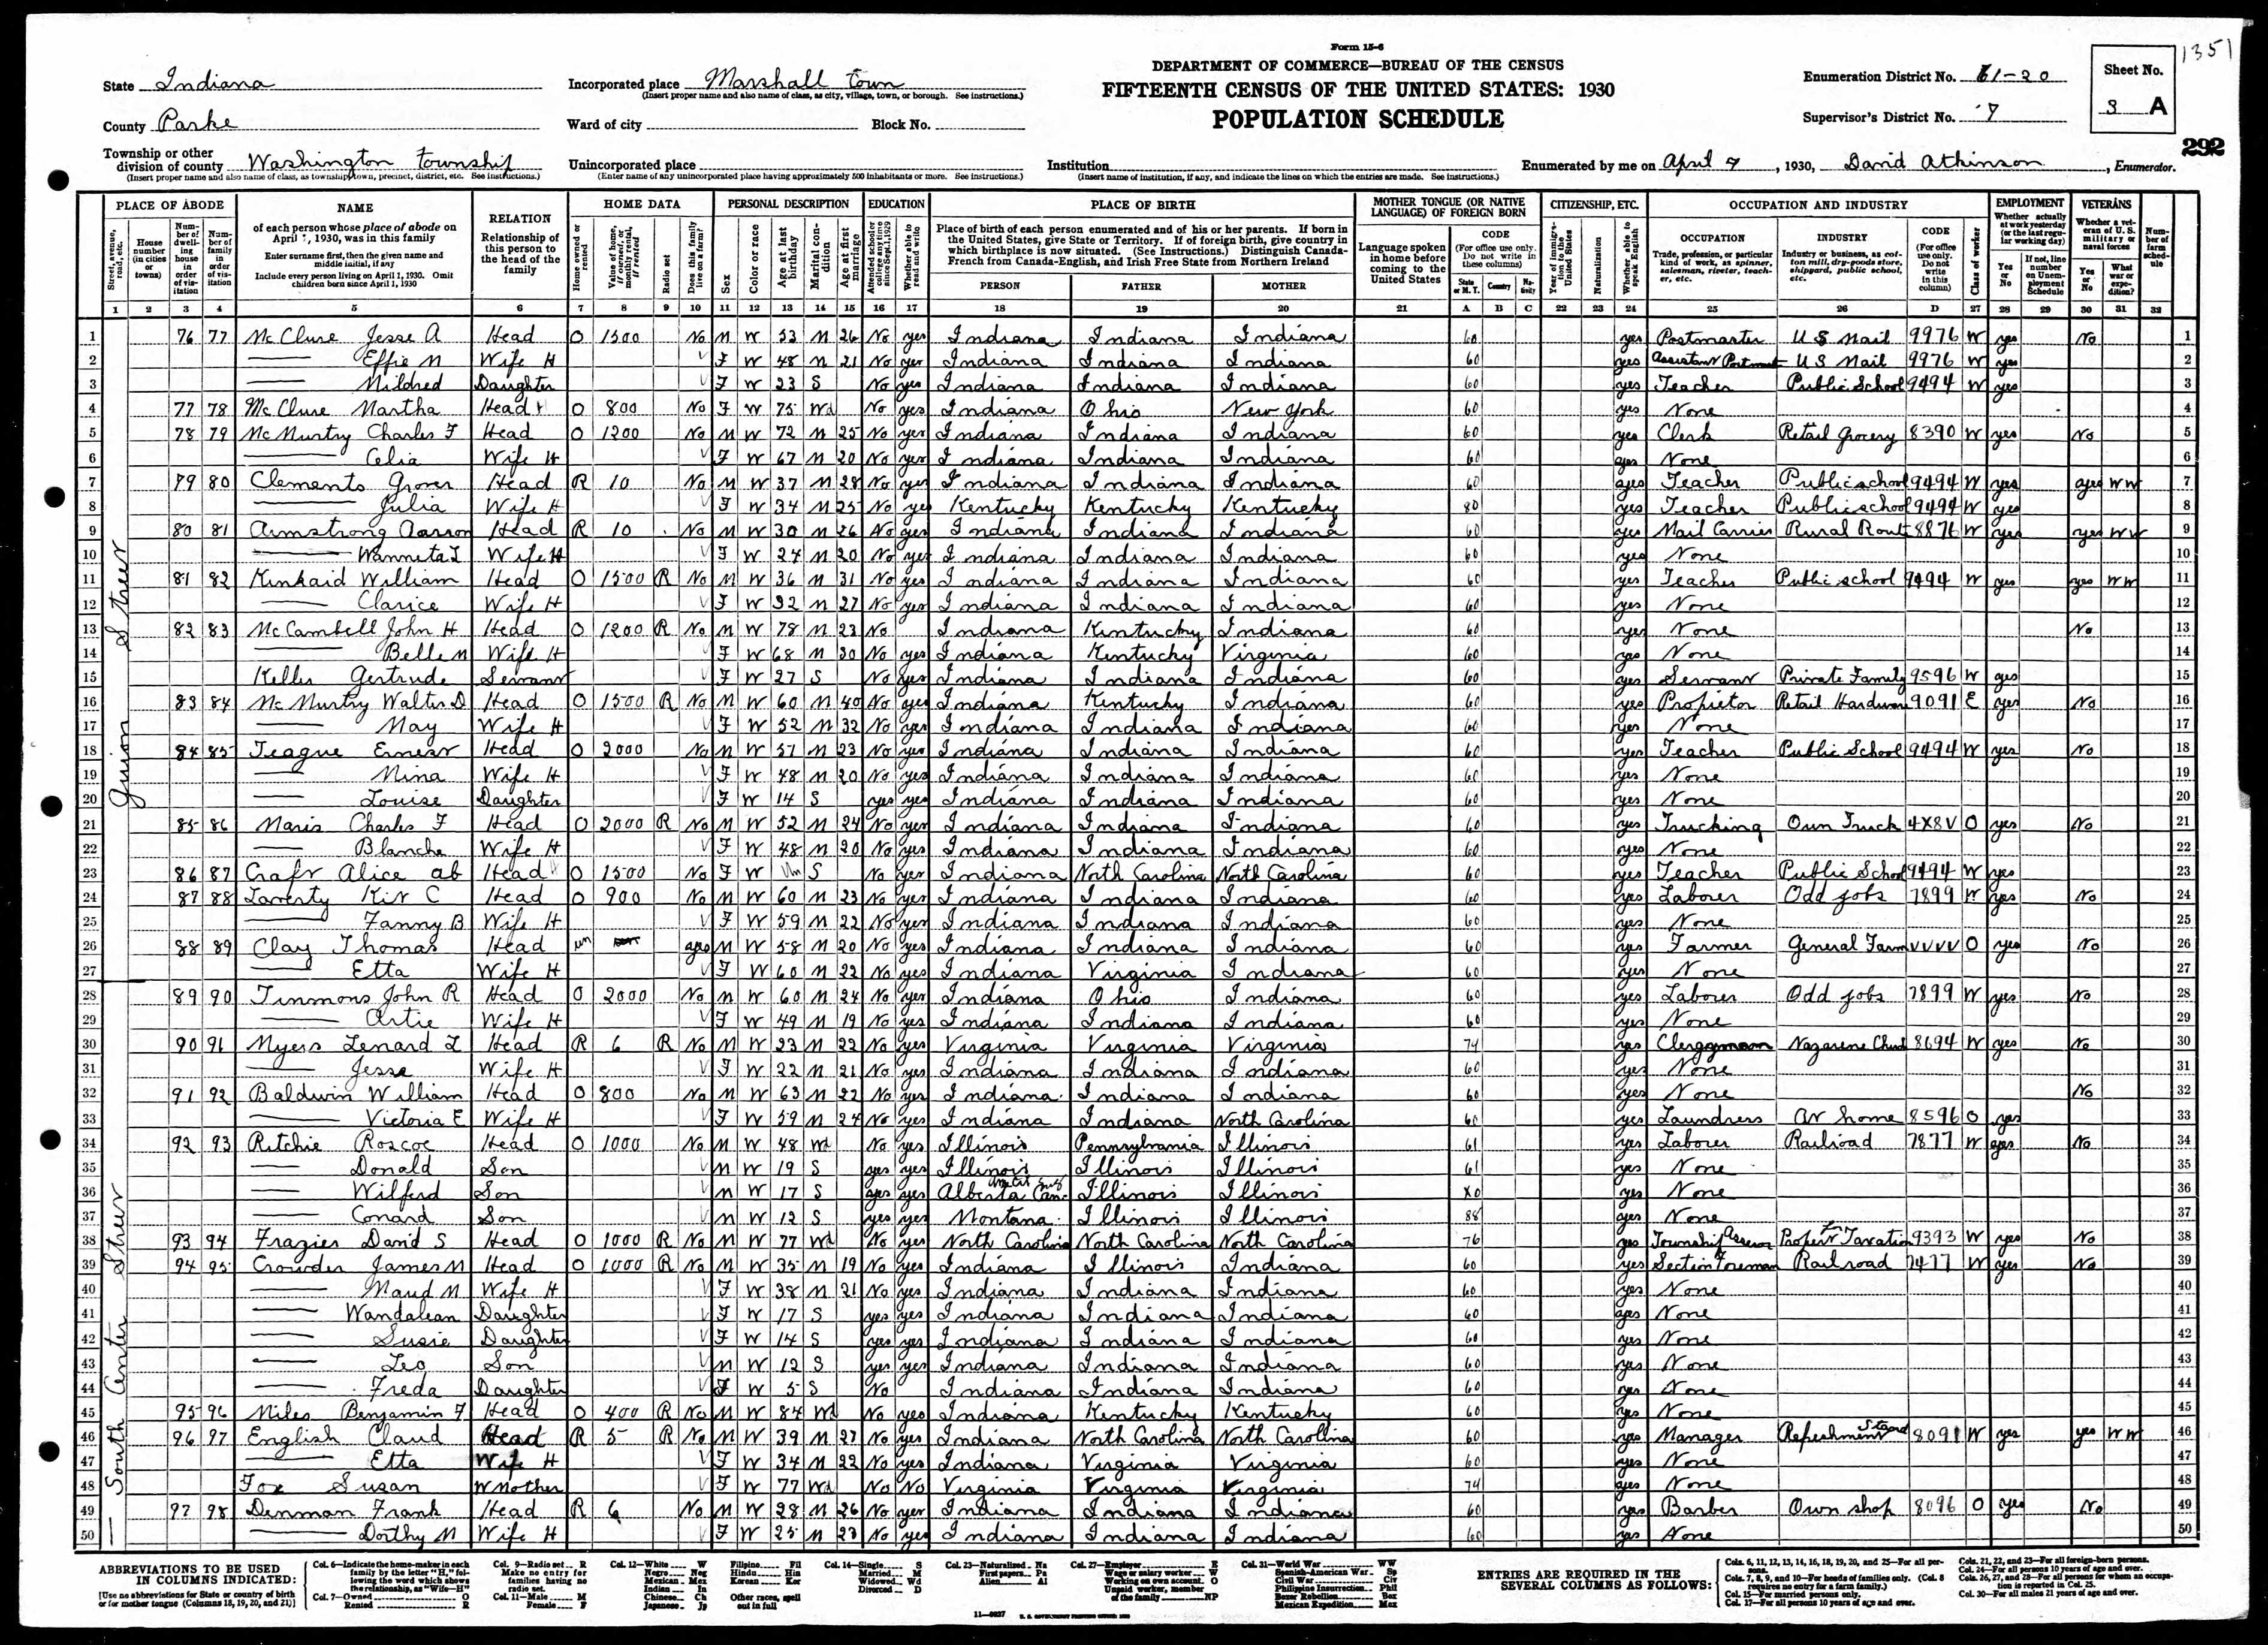 1351
Form 15-6
DEPARTMENT OF COMMERCE—BUREAU OF THE CENSUS
FIFTEENTH CENSUS OF THE UNITED STATES: 1930
POPULATION SCHEDULE
State Indiana
Incorporated place Marshall town
(Insert proper name and also name of class, as city, village, town, or borough. See instructions.)
Enumeration District No. 61-20
Sheet No.
3 A
County Parke
Ward of city
Block No.
Supervisor's District No. 7
292
Township or other division of county Washington township
(Insert proper name and also name of class, as township, town, precinct, district, etc. See instructions.)
Unincorporated place
(Enter name of any unincorporated place having approximately 500 inhabitants or more. See instructions.)
Institution
(Insert name of institution, if any, and indicate the lines on which the entries are made. See instructions.)
Enumerated by me on April 7, 1930, David Atkinson, Enumerator.
PLACE OF ABODE NAME RELATION HOME DATA PERSONAL DESCRIPTION EDUCATION PLACE OF BIRTH MOTHER TONGUE (OR NATIVE LANGUAGE) OF FOREIGN BORN CITIZENSHIP, ETC. OCCUPATION AND INDUSTRY EMPLOYMENT VETERANS
PERSON FATHER MOTHER
1 2 3 4 5 6 7 8 9 10 11 12 13 14 15 16 17 18 19 20 21 A B C 22 23 24 25 26 D 27 28 29 30 31 32
Junion Street
1 76 77 McClure Jesse A Head O 1500 No M W 53 M 26 No yes Indiana Indiana Indiana 60 yes Postmaster U S Mail 9976 W yes No 1
2 Effie M Wife H V F W 48 M 21 No yes Indiana Indiana Indiana 60 yes Assistant Postmast U S Mail 9976 W yes 2
3 Mildred Daughter V F W 23 S No yes Indiana Indiana Indiana 60 yes Teacher Public School 9494 W yes 3
4 77 78 McClure Martha Head O 800 No F W 75 Wd No yes Indiana Ohio New York 60 yes None 4
5 78 79 McMurtry Charles F Head O 1200 No M W 72 M 25 No yes Indiana Indiana Indiana 60 yes Clerk Retail Grocery 8390 W yes No 5
6 Celia Wife H V F W 67 M 20 No yes Indiana Indiana Indiana 60 yes None 6
7 79 80 Clements Grover Head R 10 No M W 37 M 28 No yes Indiana Indiana Indiana 60 yes Teacher Public school 9494 W yes yes WW 7
8 Julia Wife H V F W 34 M 25 No yes Kentucky Kentucky Kentucky 80 yes Teacher Public school 9494 W yes 8
9 80 81 Armstrong Aarron Head R 10 No M W 30 M 26 No yes Indiana Indiana Indiana 60 yes Mail Carrier Rural Route 8876 W yes yes WW 9
10 Wanneta L Wife H V F W 24 M 20 No yes Indiana Indiana Indiana 60 yes None 10
11 81 82 Kinkaid William Head O 1500 R No M W 36 M 31 No yes Indiana Indiana Indiana 60 yes Teacher Public school 9494 W yes yes WW 11
12 Clarice Wife H V F W 32 M 27 No yes Indiana Indiana Indiana 60 yes None 12
13 82 83 McCambell John H Head O 1200 R No M W 78 M 23 No Indiana Kentucky Indiana 60 yes None No 13
14 Belle M Wife H V F W 68 M 20 No yes Indiana Kentucky Virginia 60 yes None 14
15 Keller Gertrude Servant V F W 27 S No yes Indiana Indiana Indiana 60 yes Servant Private Family 9596 W yes 15
16 83 84 McMurtry Walter D Head O 1500 R No M W 60 M 40 No yes Indiana Kentucky Indiana 60 yes Propietor Retail Hardware 9091 E yes No 16
17 May Wife H V F W 52 M 32 No yes Indiana Indiana Indiana 60 yes None 17
18 84 85 Teague Ernest Head O 2000 No M W 51 M 23 No yes Indiana Indiana Indiana 60 yes Teacher Public School 9494 W yes No 18
19 Nina Wife H V F W 48 M 20 No yes Indiana Indiana Indiana 60 yes None 19
20 Louise Daughter V F W 14 S yes yes Indiana Indiana Indiana 60 yes None 20
21 85 86 Maris Charles F Head O 2000 R No M W 52 M 24 No yes Indiana Indiana Indiana 60 yes Trucking Own Truck 4X8V O yes No 21
22 Blanche Wife H V F W 48 M 20 No yes Indiana Indiana Indiana 60 yes None 22
23 86 87 Craft Alice ab Head O 1500 No F W Un S No yes Indiana North Carolina North Carolina 60 yes Teacher Public School 9494 W yes 23
24 87 88 Laverty Kit C Head O 900 No M W 60 M 23 No yes Indiana Indiana Indiana 60 yes Laborer Odd jobs 7899 W yes No 24
25 Fanny B Wife H V F W 59 M 22 No yes Indiana Indiana Indiana 60 yes None 25
26 88 89 Clay Thomas Head un yes M W 58 M 20 No yes Indiana Indiana Indiana 60 yes Farmer General Farm VVVV O yes No 26
27 Etta Wife H V F W 60 M 22 No yes Indiana Virginia Indiana 60 yes None 27
South Center Street
28 89 90 Timmons John R Head O 2000 No M W 60 M 24 No yes Indiana Ohio Indiana 60 yes Laborer Odd jobs 7899 W yes No 28
29 Artie Wife H V F W 49 M 19 No yes Indiana Indiana Indiana 60 yes None 29
30 90 91 Myers Lenard L Head R 6 R No M W 23 M 22 No yes Virginia Virginia Virginia 74 yes Clergyman Nazarene Church 8694 W yes No 30
31 Jesse Wife H V F W 22 M 21 No yes Indiana Indiana Indiana 60 yes None 31
32 91 92 Baldwin William Head O 800 No M W 63 M 22 No yes Indiana Indiana Indiana 60 yes None No 32
33 Victoria E Wife H V F W 59 M 24 No yes Indiana Indiana North Carolina 60 yes Laundress At home 8596 O yes 33
34 92 93 Ritchie Roscoe Head O 1000 No M W 48 Wd No yes Illinois Pennsylvania Illinois 61 yes Laborer Railroad 7877 W yes No 34
35 Donald Son V M W 19 S yes yes Illinois Illinois Illinois 61 yes None 35
36 Wilferd Son V M W 17 S yes yes Alberta Can Illinois Illinois X0 yes None 36
37 Conard Son V M W 12 S yes yes Montana Illinois Illinois 88 yes None 37
38 93 94 Frazier David S Head O 1000 R No M W 77 Wd No yes North Carolina North Carolina North Carolina 76 yes Township Assesor Propert for Taxation 9393 W yes No 38
39 94 95 Crowder James M Head O 1000 R No M W 35 M 19 No yes Indiana Illinois Indiana 60 yes Section Foreman Railroad 7477 W yes No 39
40 Maud M Wife H V F W 38 M 21 No yes Indiana Indiana Indiana 60 yes None 40
41 Wandalean Daughter V F W 17 S yes yes Indiana Indiana Indiana 60 yes None 41
42 Susie Daughter V F W 14 S yes yes Indiana Indiana Indiana 60 yes None 42
43 Leo Son V M W 12 S yes yes Indiana Indiana Indiana 60 yes None 43
44 Freda Daughter V F W 5 S No Indiana Indiana Indiana 60 yes None 44
45 95 96 Miles Benjamin F Head O 400 R No M W 84 Wd No yes Indiana Kentucky Kentucky 60 yes None 45
46 96 97 English Claud Head R 5 R No M W 39 M 27 No yes Indiana North Carolina North Carolina 60 yes Manager Refeshment Stand 8091 W yes yes WW 46
47 Etta Wife H V F W 34 M 22 No yes Indiana Virginia Virginia 60 yes None 47
48 Fox Susan W mother V F W 77 Wd No No Virginia Virginia Virginia 74 yes None 48
49 97 98 Denman Frank Head R 6 No M W 28 M 26 No yes Indiana Indiana Indiana 60 yes Barber Own shop 8096 O yes No 49
50 Dorthy M Wife H V F W 25 M 23 No yes Indiana Indiana Indiana 60 yes None 50
ABBREVIATIONS TO BE USED IN COLUMNS INDICATED:
ENTRIES ARE REQUIRED IN THE SEVERAL COLUMNS AS FOLLOWS: